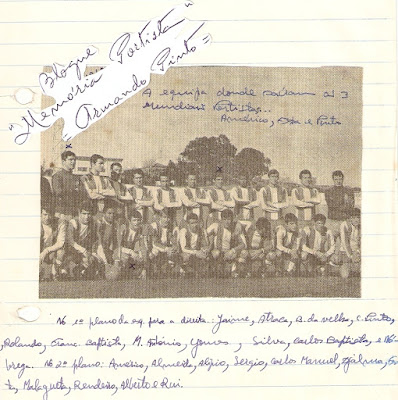 Blogue
"Memória Portista"
= Armando Pinto =
A equipa donde saíam os 3
Mundiais Portistas...
Américo, e Pinto
No 1º plano da esq. para a direita: Jaime, Atraca, B. da Velha, C. Pinto,
Rolando, Franc. Baptista, M. António, Gomes, Silva, Carlos Baptista, e Nó-
brega. No 2º plano: Américo, Almeida, Alípio, Sergio, Carlos Manuel, Djalma,
Malagueta, Rendeiro, Alberto e Rui.